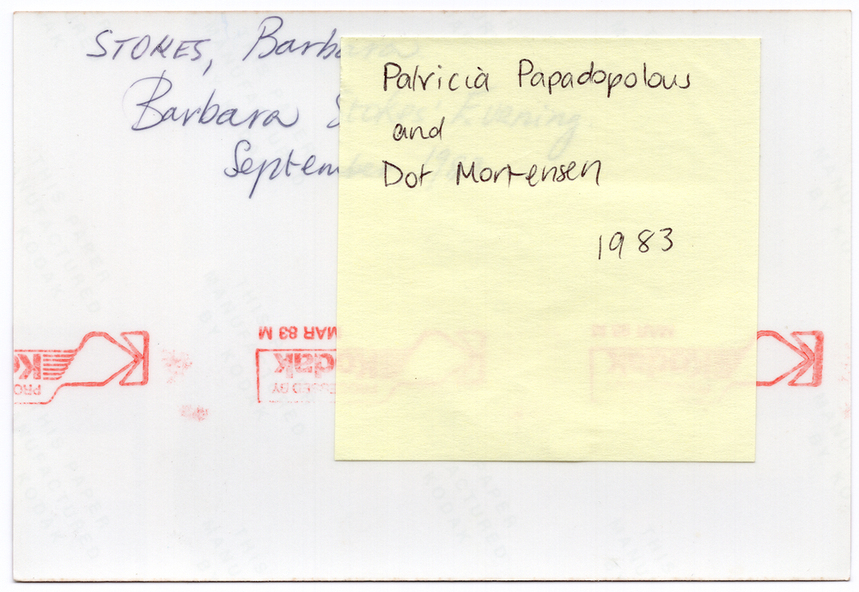 STOKES, Barbara
Barbara Stokes' Evening
September
Patricia Papadopolous
and
Dot Mortensen
1983
MAR 83 M
Kodak
PROCESSED BY
THIS PAPER
MANUFACTURED
BY KODAK